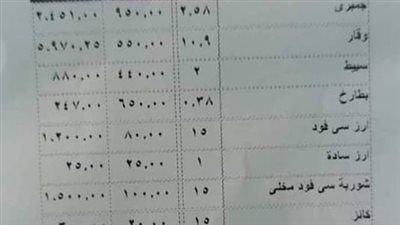 جمبري ٢.٥٨ ٩٥٠,٠٠ ٢.٤٥١,٠٠
وقار ١٠.٩ ٥٥٠,٠٠ ٥.٩٧٠,٢٥
سبيط ٢ ٤٤٠,٠٠ ٨٨٠,٠٠
بطارخ ٠.٣٨ ٦٥٠,٠٠ ٢٤٧,٠٠
ارز سى فود ١٥ ٨٠,٠٠ ١,٢٠٠,٠٠
ارز سادة ١ ٢٥,٠٠ ٢٥,٠٠
شوربة سى فود مخلى ١٥ ١٠٠,٠٠ ١,٥٠٠,٠٠
كانز ١٥ ٢٠,٠٠